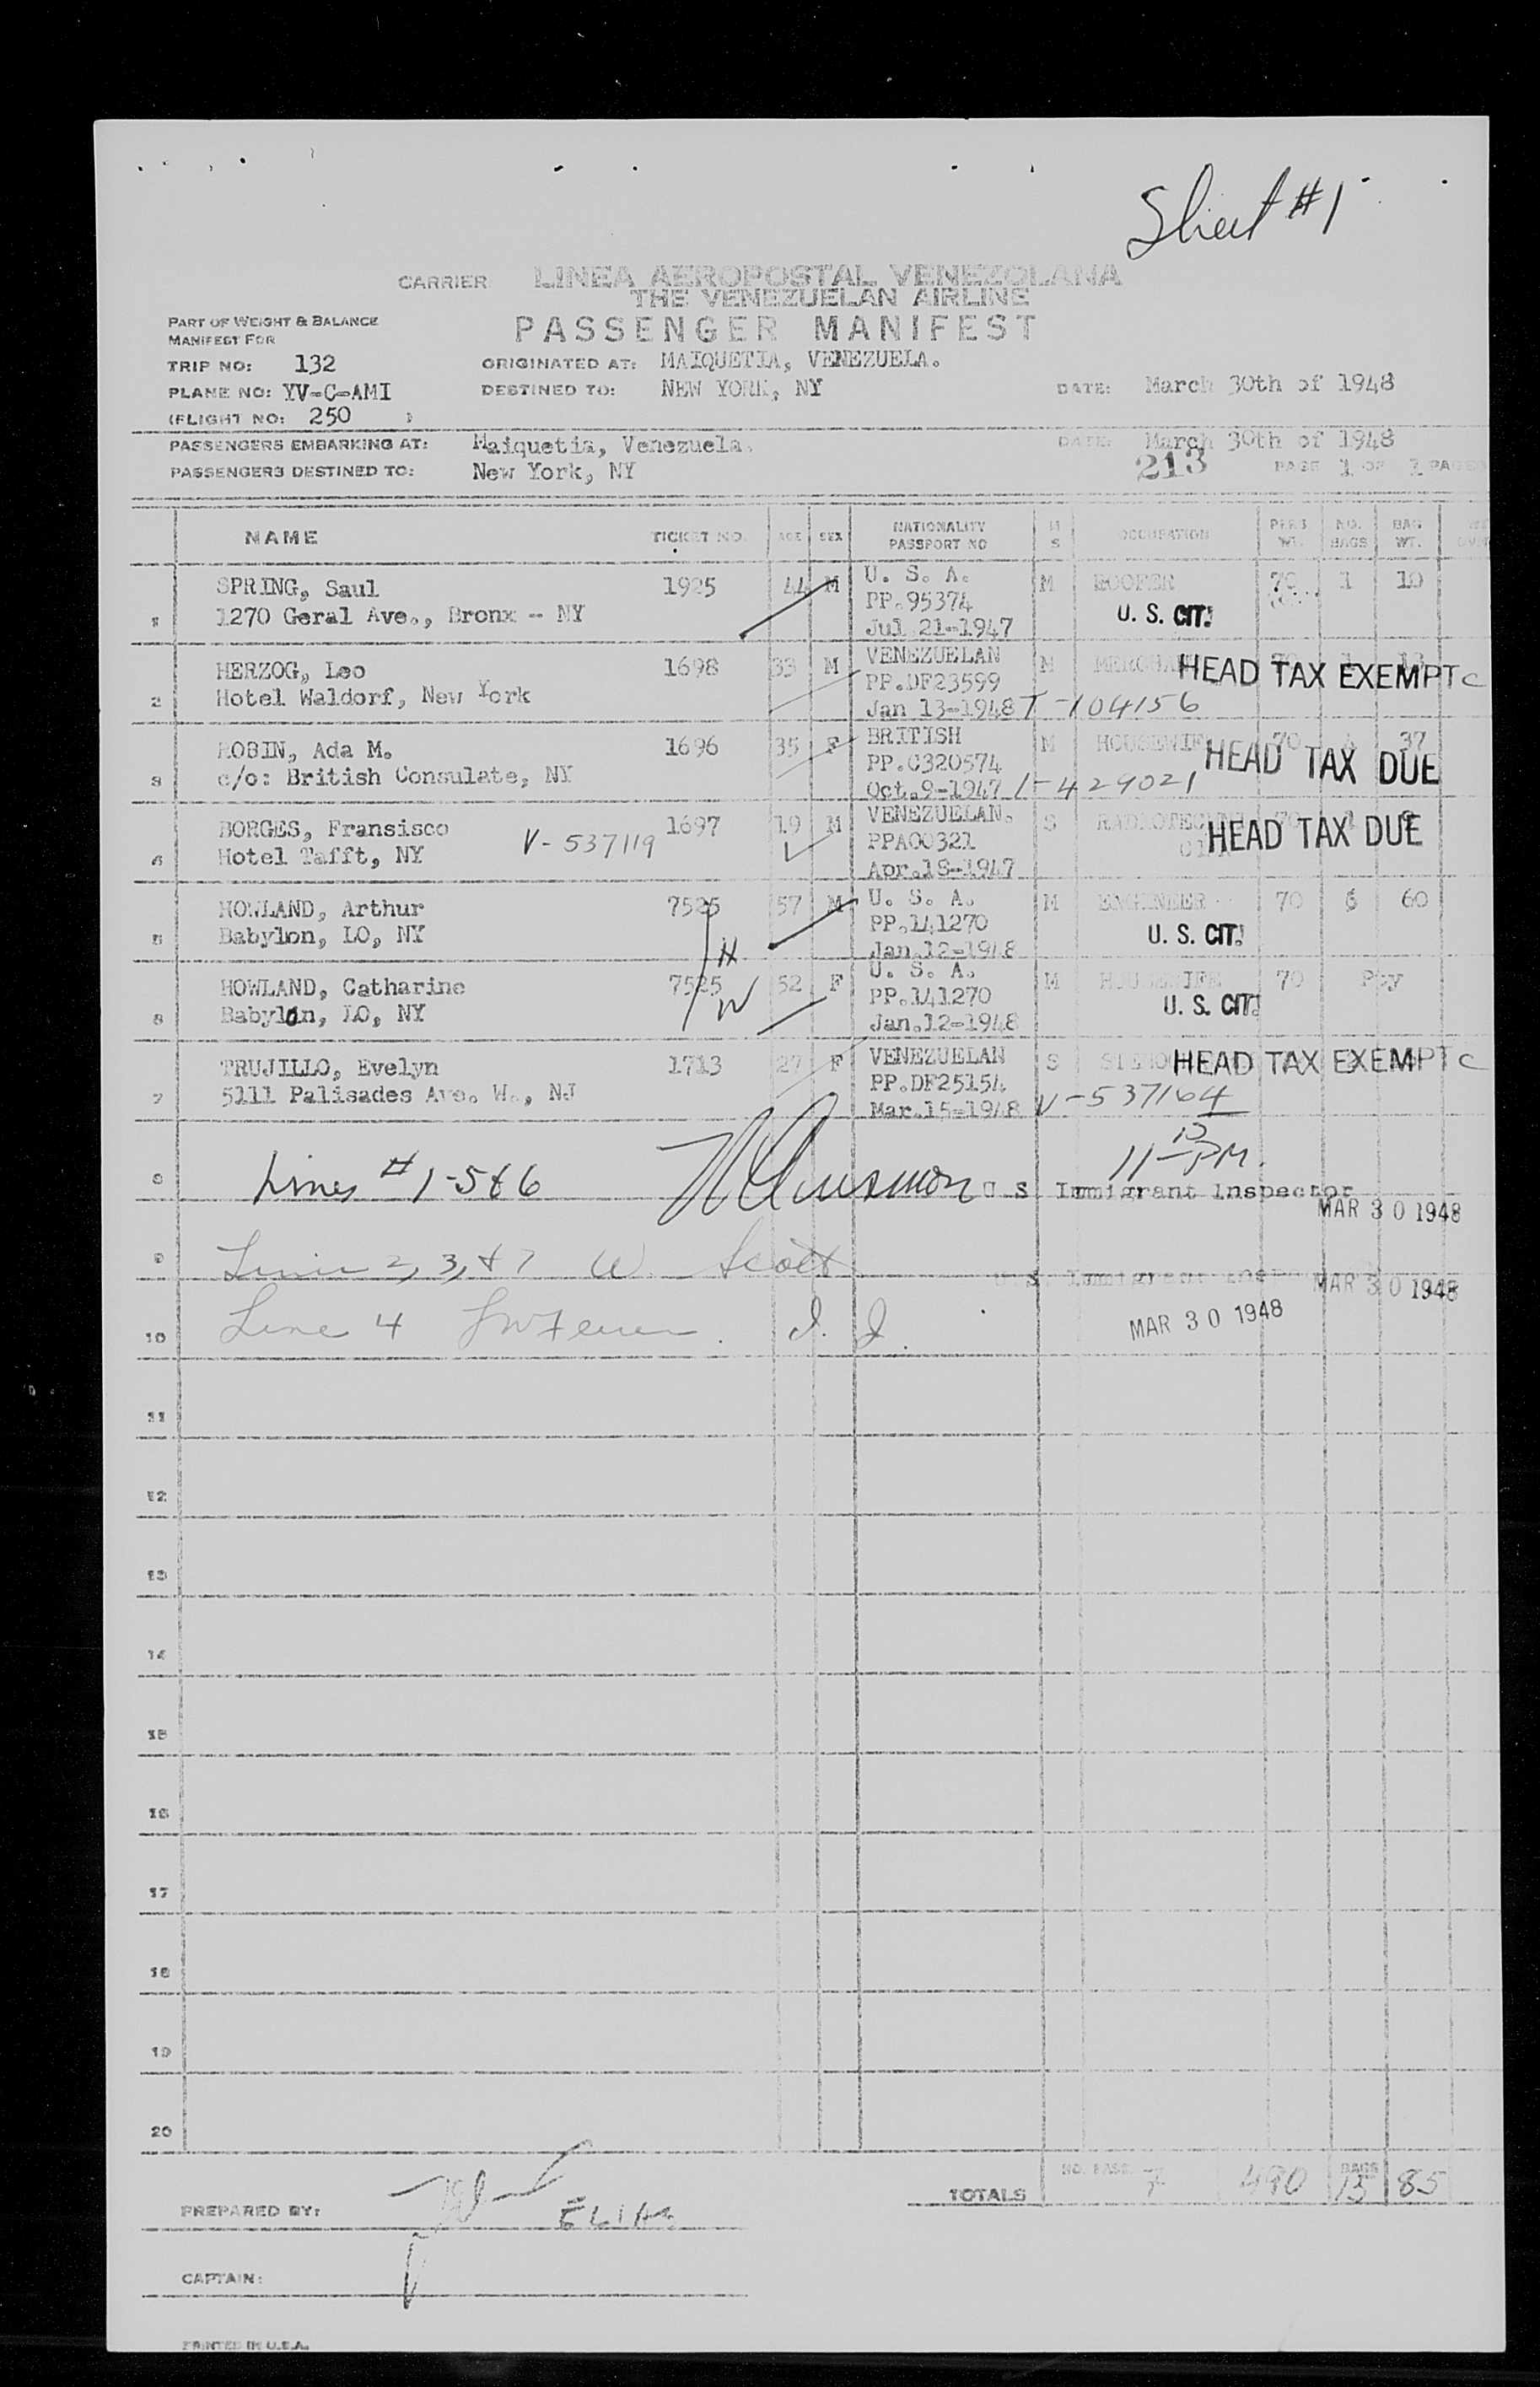 Sheet #1
CARRIER LINEA AEROPOSTAL VENEZOLANA
THE VENEZUELAN AIRLINE
PART OF WEIGHT & BALANCE
MANIFEST FOR
PASSENGER MANIFEST
TRIP NO: 132 ORIGINATED AT: MAIQUETIA, VENEZUELA.
PLANE NO: YV-C-AMI DESTINED TO: NEW YORK, NY DATE: March 30th of 1948
(FLIGHT NO: 250 )
PASSENGERS EMBARKING AT: Maiquetia, Venezuela. DATE: March 30th of 1948
PASSENGERS DESTINED TO: New York, NY 213 PAGE 1 OF 1 PAGES
NAME TICKET NO. AGE SEX NATIONALITY PASSPORT NO M S OCCUPATION PERS WT. NO. BAGS BAG WT.
SPRING, Saul 1925 44 M U. S. A. M ROOFER 70 1 10
1 1270 Geral Ave., Bronx -- NY PP.95374 U. S. CIT.
Jul 21-1947
HERZOG, Leo 1698 33 M VENEZUELAN M HEAD TAX EXEMPT C
2 Hotel Waldorf, New York PP.DF23599
Jan 13-1948 T-104156
ROBIN, Ada M. 1696 35 F BRITISH M HOUSEWIFE 70 37
3 c/o: British Consulate, NY PP.C320574 HEAD TAX DUE
Oct.9-1947 1-429021
BORGES, Fransisco 1697 19 M VENEZUELAN. S
Hotel Tafft, NY V-537119 PPA00321 HEAD TAX DUE
Apr.18-1947
HOWLAND, Arthur 7525 57 M U. S. A. M ENGINEER 70 6 60
5 Babylon, LO, NY H PP.141270 U. S. CIT.
Jan.12-1948
HOWLAND, Catharine 7525 52 F U. S. A. M HOUSEWIFE 70
Babylon, LO, NY W PP.141270 U. S. CIT.
Jan.12-1948
TRUJILLO, Evelyn 1713 27 F VENEZUELAN S HEAD TAX EXEMPT C
7 5111 Palisades Ave. W., NJ PP.DF25154
Mar.15-1948 V-537164
11 10 PM.
Lines #1-5&6 U S Immigrant Inspector
MAR 30 1948
9 Lines 2, 3, & 7 W Scott U. S. Immigrant MAR 30 1948
10 Line 4 I. I. MAR 30 1948
11
12
13
14
15
16
17
18
19
20
TOTALS NO. PASS. 7 490 BAGS 13 85
PREPARED BY: ELIAS
CAPTAIN:
PRINTED IN U.S.A.